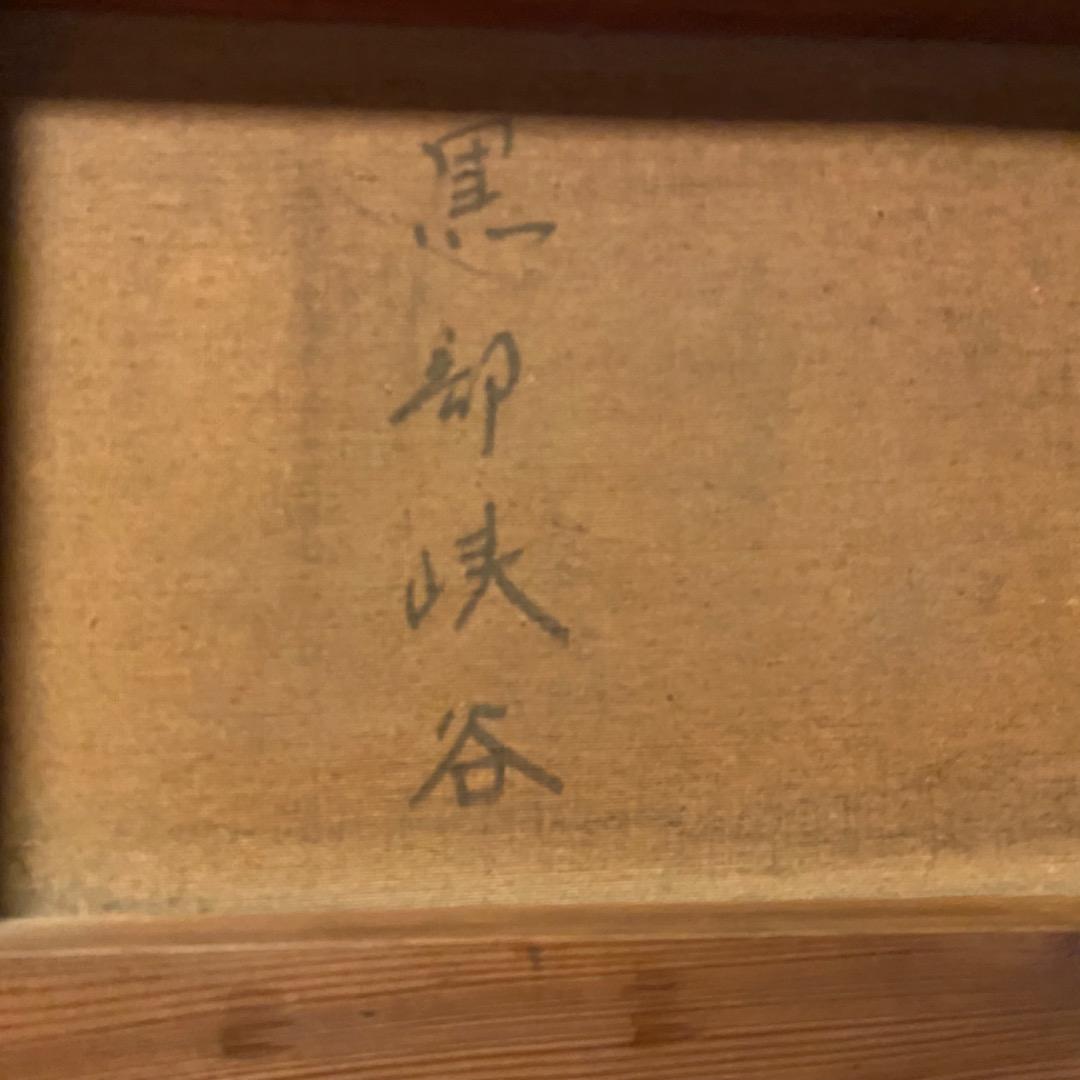 黒部峡谷